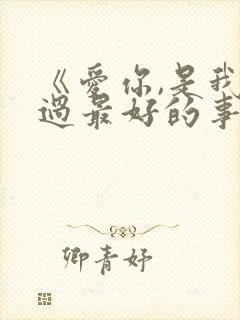 《爱你,是我
过最好的事
卿青妤